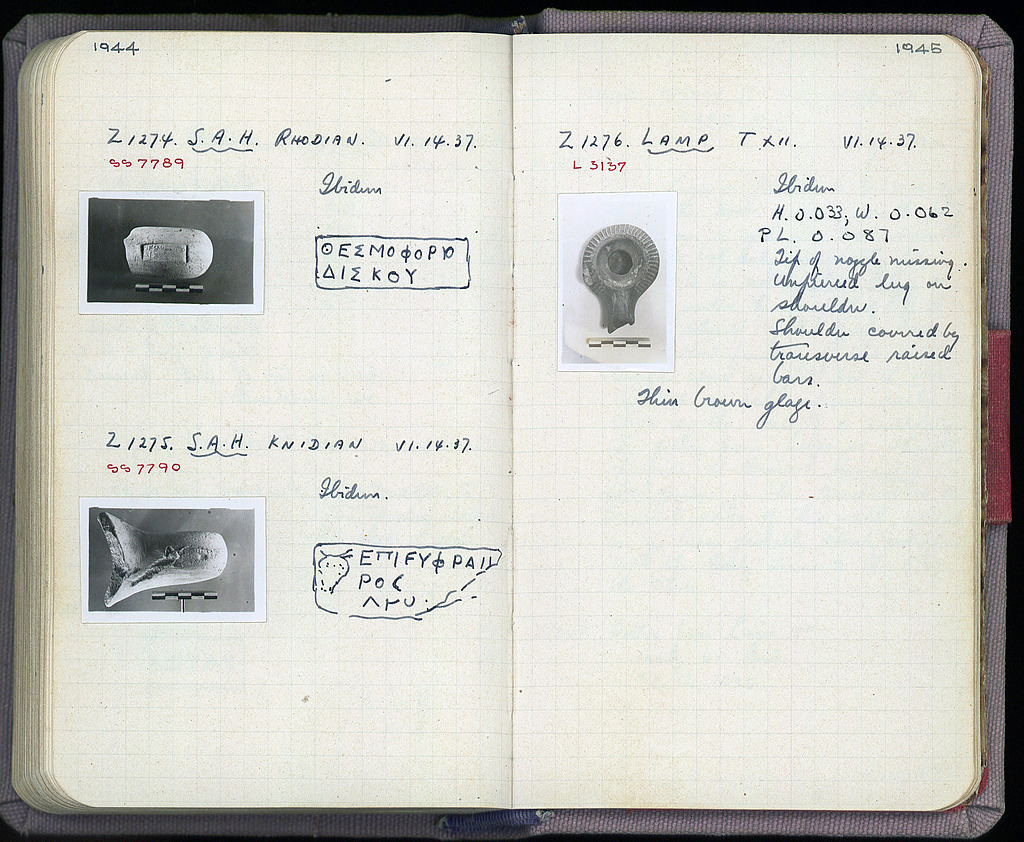 1944
Z 1274. S.A.H. RHODIAN. VI.14.37.
SS 7789
Ibidem
ΘΕΣΜΟΦΟΡΙΟ
ΔΙΣΚΟΥ
Z 1275. S.A.H. KNIDIAN VI.14.37.
SS 7790
Ibidem.
ΕΠΙΕΥΦΡΑΓ
ΡΟΣ
1945
Z 1276. LAMP T XII. VI.14.37.
L 3137
Ibidem
H. 0.033, W. 0.062
PL. 0.087
Tip of nozzle missing.
Unpierced lug on
shoulder.
Shoulder covered by
transverse raised
bars.
Thin brown glaze.